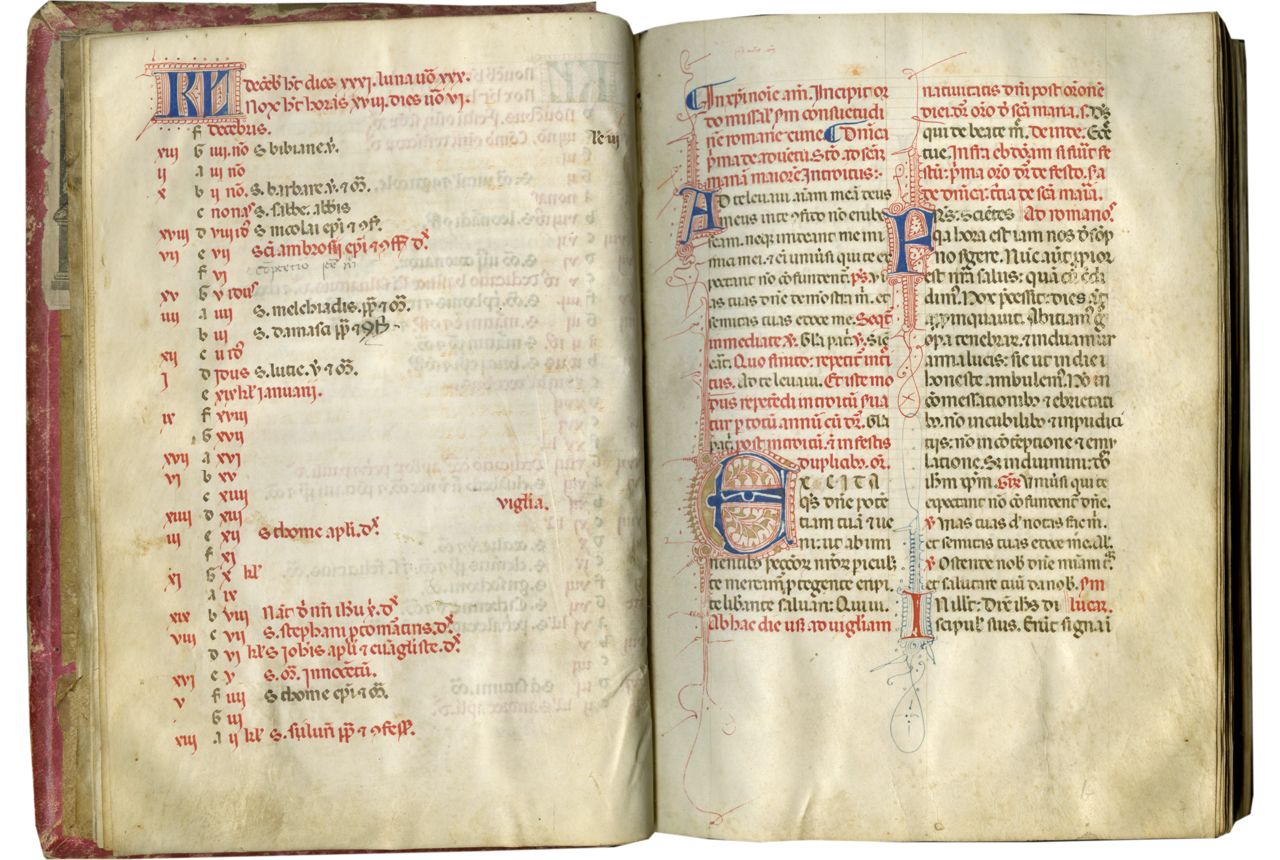 KL decēb' hēt dies xxxi. luna ūo xxx.
Nox hēt horas xviii. dies ūo vi.
f decēbris.
xiii G iiii. no S bibiane. v̄.
ii A iii no
x b ii no S. barbare. v̄. ⁊ m̄.
c nonas S. sabbe. abbis
xviii d viii id' S nicolai ep̄i ⁊ ꝯf.
vii e vii Sc̄i ambrosii ep̄i ⁊ ꝯff d̄x
f vi
xv G v idus
iiii A iiii S. melchiadis. pp̄ ⁊ m̄.
b iii S. damasi pp̄ ⁊ ꝯf
xii c ii id'
i d idus S. lucie. v̄ ⁊ m̄.
e xix kl' ianuarij.
ix f xviii
G xvii
xvii A xvi
vi b xv
c xiiii
viglia.
xiiii d xiii
iii e xii S thome apl̄i. d̄x
f xi
xi G x kl'
A ix
xix b viii Nat̄ dn̄i nr̄i ihū x̄. d̄x
viii c vii S. stephani ptomartiris. d̄x
d vi kl' S iohis apl̄i ⁊ euāgliste. d̄x
xvi e v S. m̄. innocētū.
v f iiii S thome ep̄i ⁊ m̄.
G iii
xiii A ii kl' S. siluri pp̄ ⁊ ꝯfess.
In xp̄i noīe am̄. Incipit or
do missal' sm̄ consuetudi
nē romane curie. Dn̄ica
p̄ma de aduentu. Stō. ad scām
mariā maiorē Introitus:
Ad te leuaui aīam meā deus
meus in te ꝯfido nō erube
scam. neq; irrideant me ini
mici mei. ⁊ eī uniūsi qui te ex
pectant nō ꝯfundent̄. p̄s. Vi
as tuas dn̄e demōstra m̄. et
semitas tuas edoce me. Seqt̄
immediate v̄. Gl̄a pat̄. v̄. Sic
erāt. Quo finito: repetit̄ intr
tus. Ad te leuaui. Et iste mo
dus repetēdi introitū serua
tur p totū annū cū dr̄. Gl̄a
pat̄. post introitū. ⁊ in festis
duplicib; om̄.
EXCITA
qs̄ dn̄e potē
tiam tuā ⁊ ue
ni: ut ab īmi
nentibo peccōr nr̄or picul'
te meream̄ ptegente eripi.
te libante saluari: Qui uiu.
Ab hac die usq; ad vigliam
natiuitatis dn̄i post orōne
diei dr̄ orō de scā maria. s. Ds̄
qui de beate m̄. Deinde. Ecc̄e
tue. Infra ebdoam̄ si fiūt fe
sta: pma orō dr̄ de festo. s'a
de dn̄ica. t'cia de scā maria.
Frs̄: Sciētes Ad romanos
qa hora est iam nos d' sōp
no s'gere. Nūc aūt ꝓpior
est nr̄a salus: quā cū c'di
dim'. Nox p̄cessit: dies aūt
appinquauit. Abiciam' g°
opa tenebrar. ⁊ induamur
arma lucis: sic ut in die
honeste ambulem'. Nō in
comessationibo ⁊ ebrietati
bo. nō in cubilibo ⁊ impudici
tiis: nō in cōtēptione ⁊ emu
latione. S; induimini: dn̄
ihm̄ xp̄m. Gr̄. Uniūsi qui te
expectant nō cōfundent̄ dn̄e.
v̄ Vias tuas dn̄e notas fac m̄.
et semitas tuas edoce me. Al'.
v̄ Ostende nob dn̄e miam̄ t'.
et salutare tuū da nob. Sm
In ill' t̄: Dix̄ ihs̄ di lucā.
scipul' suis. Erūt signa ī